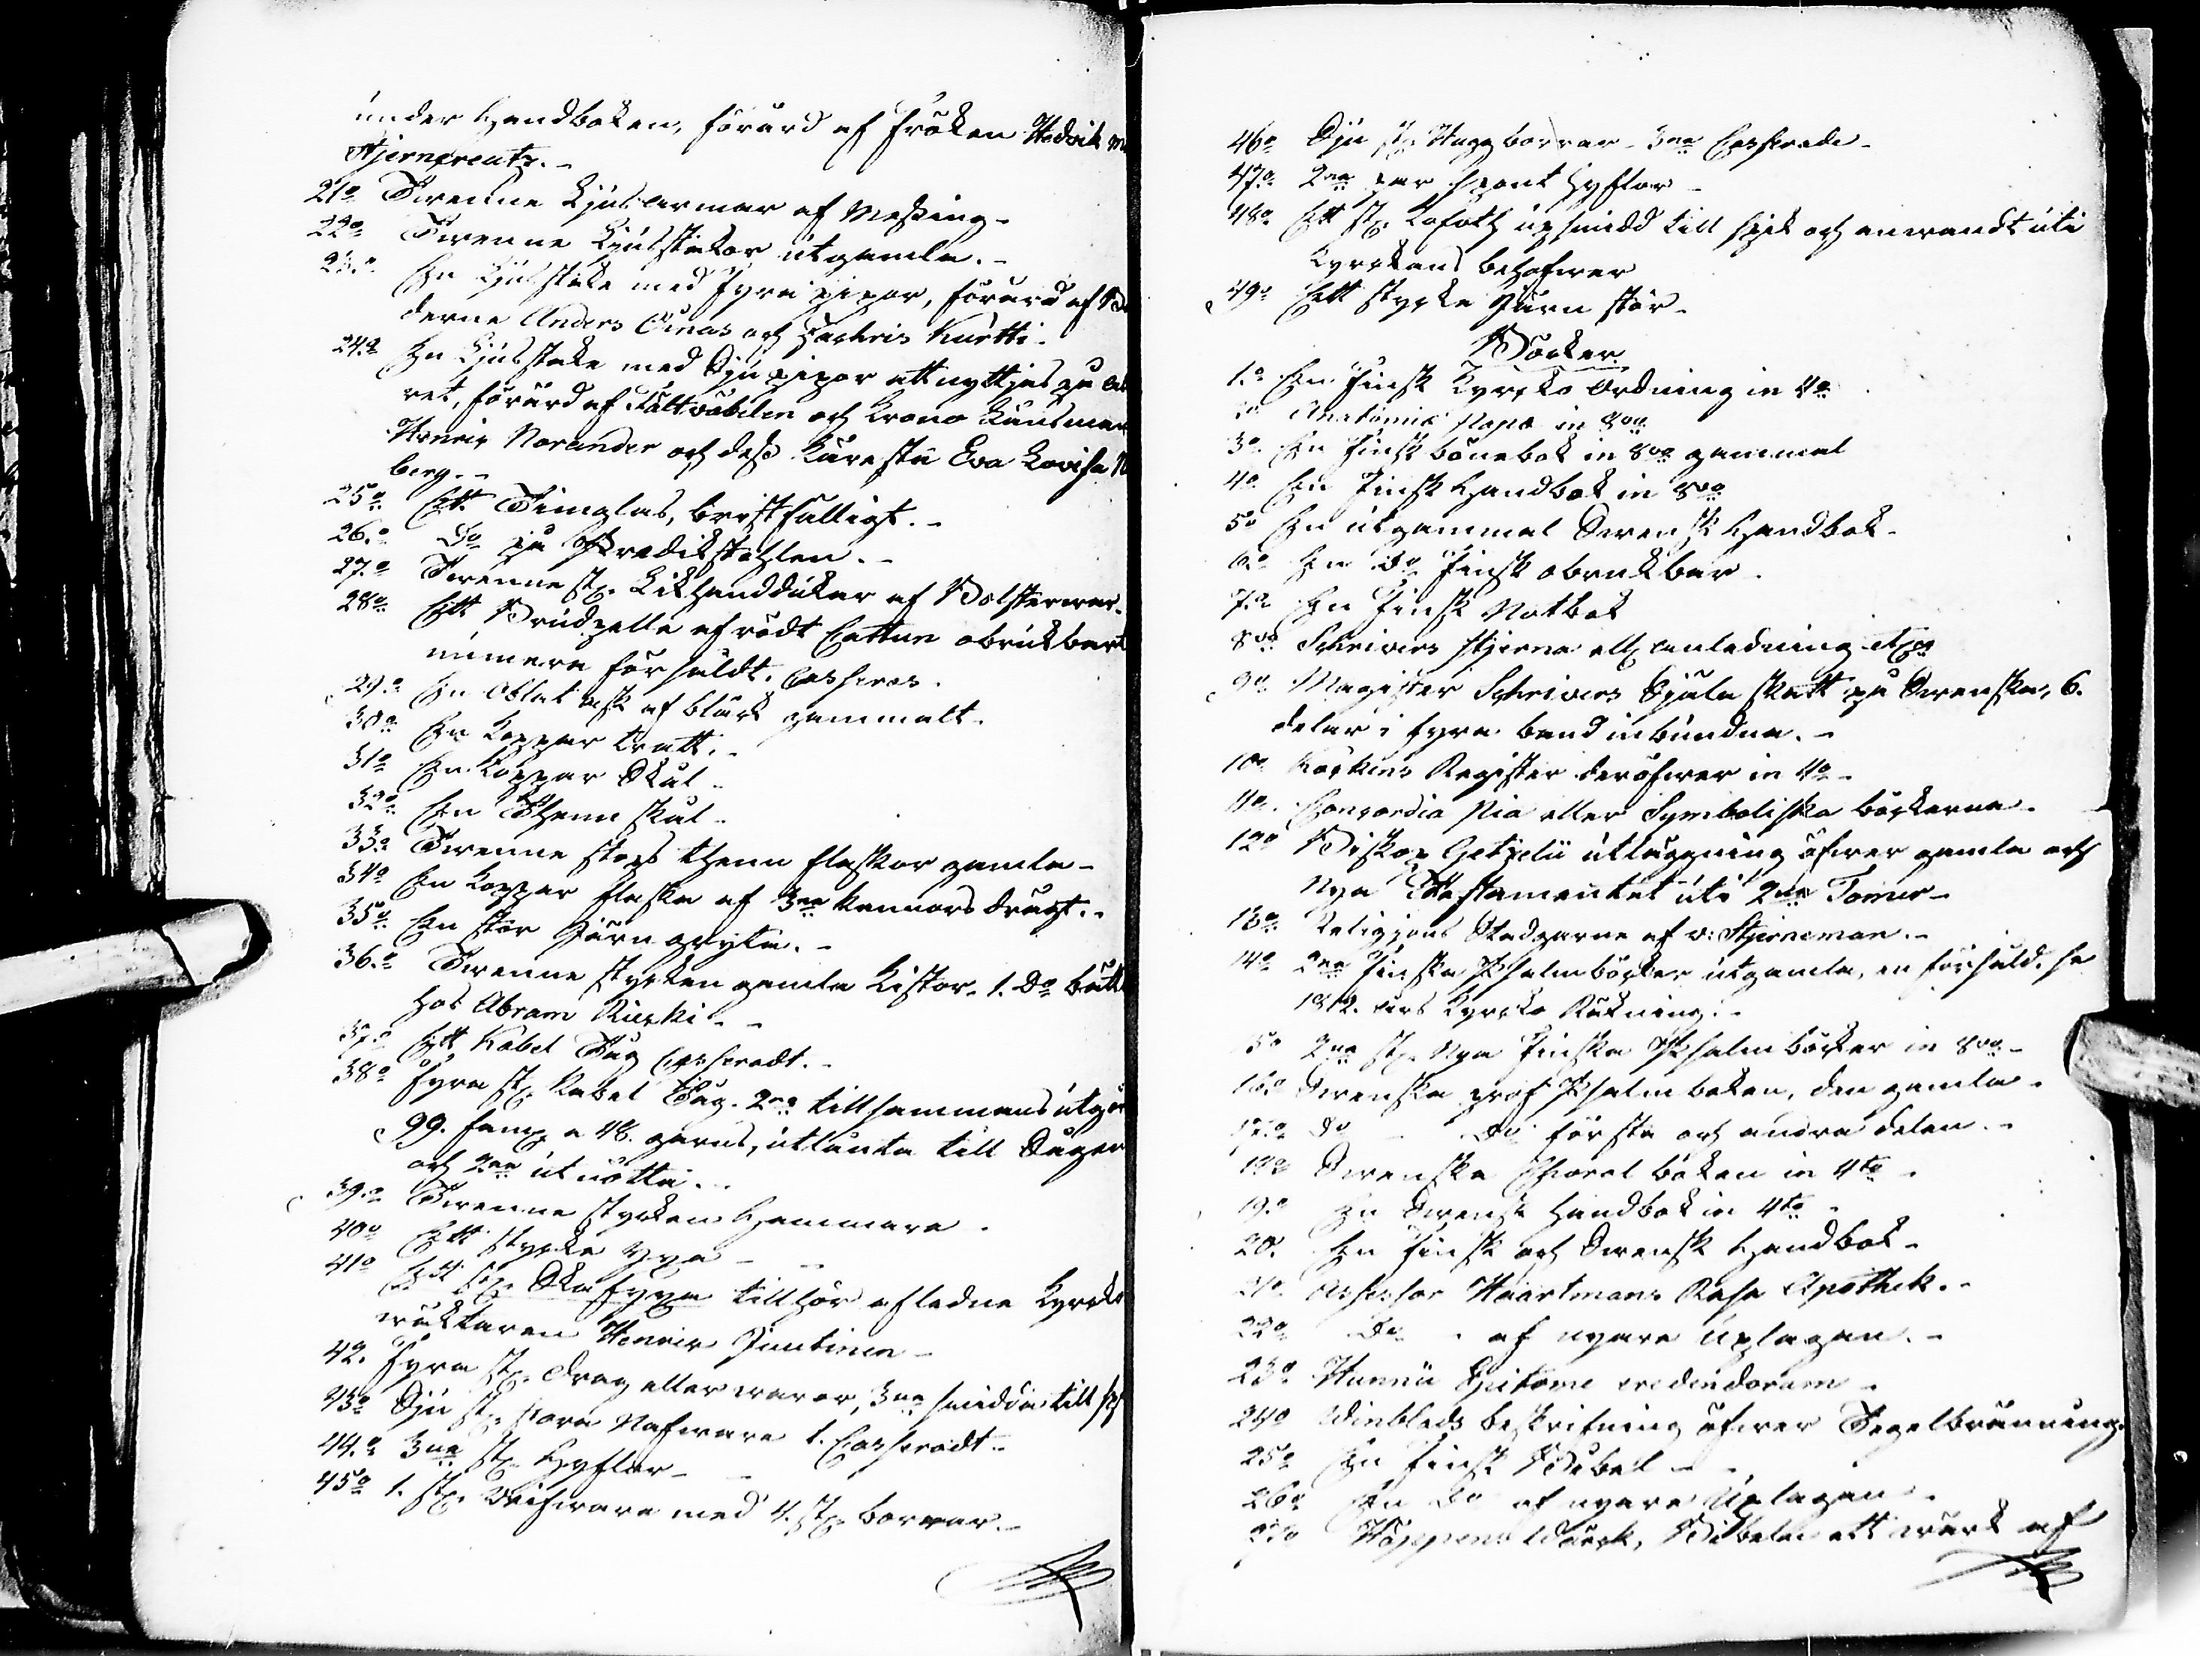 under Handboken, förärd af Fröken Hedvik
Stjerncreutz.
21o Tvenne Ljusarmar af Messing
22o Tvenne Ljusstakar utgamla.
23o En Ljusstake med fyra pipor, förärd af
derne Anders Oinas och Zachris Kurtti
24o En Ljusstake med Sju pipor att nyttjas på
ret, förärd af Fältväbelen och Krono Länsman
Henric Norander och dess Käresta Eva Lovisa
berg.
25o Ett Timglas, bristfälligt.
26o Do på Predikstohlen.
27o Tvenne st. Likhanddukar af Bolsterwar
28o Ett Brudpälla af rödt Cattun obrukbart
numera försåldt. Casseras.
29o En Oblat ask af bläck gammalt.
30o En Koppar tratt.
31o En Koppar Skål
32o En Thenn skål
33o Tvenne stops thenn flaskor gamla
34o En Koppar flaska af 3ne kannors drägt.
35o En stor Järn gryta.
36o Tvenne stycken gamla Kistor. 1. Do
hos Abram Ruski
37o Ett Kabel Tåg Casseradt.
38o Fyra st. Kabel Tåg. 2ne tillsammans
99. famn a 48. garns, utlånta till
och 2ne utnötta.
39o Tvenne stycken Hammare
40o Ett stycke yxa
41o Ett st. Skafyxa tillhör afledne Kyrko
wäktaren Henric Juntinen
42. Fyra st. Drag eller waror, 3ne smidda till
43o Sju st. stora Nafware 1. Casseradt
44o 3ne st. Hyflar
45o 1. st. Wrifware med 4. st. borrar.
46o Sju st. Huggborrar 3ne Casserade
47o 2ne par spont Hyflar
48o Ett st. Kofoth upsmidd till spik och anwandt uti
Kyrckans behofwer
49o Ett stycke Järn stör
Böcker
1o En Finsk Kyrcko Ordning in 4o
2o Anatomie Papae in 8vo
3o En Finsk bönebok in 8vo gammal
4o En Finsk Handbok in 8vo
5o En utgammal Swensk Handbok
6o En Do Finsk obrukbar
7o En Finsk Notbok
8vo Schrivers stjerna ell. anledning
9o Magister Schrivers Själa skatt på Swenska, 6.
delar i fyra band inbundna.
10o Register deröfwer in 4o
11o Concordia Pia eller Symboliska böckerna.
12o Biskop Getzelii utläggning öfwer gamla och
Nya Testamentet uti 2ne Tomer
13o Religions Stadgarne af v. Stjerneman.
14o 2ne Finska Psalmböcker utgamla, en försåld. se
1812. års Kyrcko Räkning.
15o 2ne st. Nya Finska Psalmböcker in 8vo
16o Swenska prof Psalmboken, den gamla.
17o Do Do första och andra delen.
18o Swenska Choral boken in 4to
19o En Swensk Handbok in 4to
20. En Finsk och Swensk Handbok
21o Assessor Haartmans Resa Apothek.
22o Do af nyare Uplagan.
23o Hunnii Epitome credendorum
24o Winblads beskrifning öfwer Tegelbränning
25o En Finsk Bibel
26o En Do af nyare Uplagan.
27o Höppens Wärk, Bibeln ett wärk af